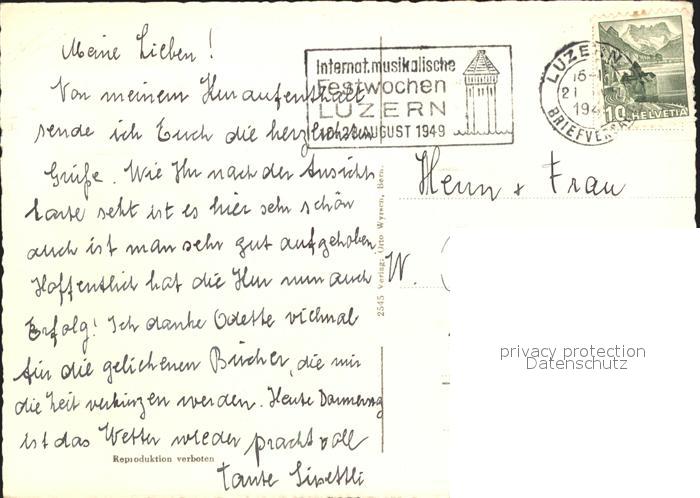 Meine Lieben!
Von meinem Kuraufenthalt
sende ich Euch die herzlichsten
Grüße. Wie Ihr nach der Ansichts
karte seht ist es hier sehr schön
auch ist man sehr gut aufgehoben
Hoffentlich hat die Kur nun auch
Erfolg! Ich danke Odette vielmal
für die geliehenen Bücher, die mir
die Zeit verkürzen werden. Heute Donnerstag
ist das Wetter wieder prachtvoll
Tante
Reproduktion verboten
2545 Verlag: Otto Wyrsch, Bern.
Internat. musikalische
Festwochen
LUZERN
AUGUST 1949
LUZERN
16-
21
194
BRIEFVERSAND
10 HELVETIA
Herrn + Frau
W.
privacy protection
Datenschutz